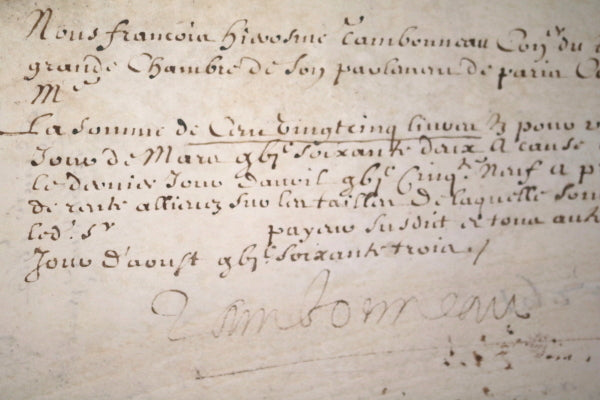 Nous francois hierosme Tambonneau Con.er du
grande Chambre de son parlemen de paris
M.e
La somme de Cens vingtcinq livres pour
Jour de Mars gbj.c soixante deux A cause
le dernier Jour d'avril gbj.c Cinq.te Neuf a
de rente allienez sur les tailles De laquelle som
led.t s.r payeur susdit et tous autr
Jour d'aoust gbj.c soixante trois ./
Tambonneau